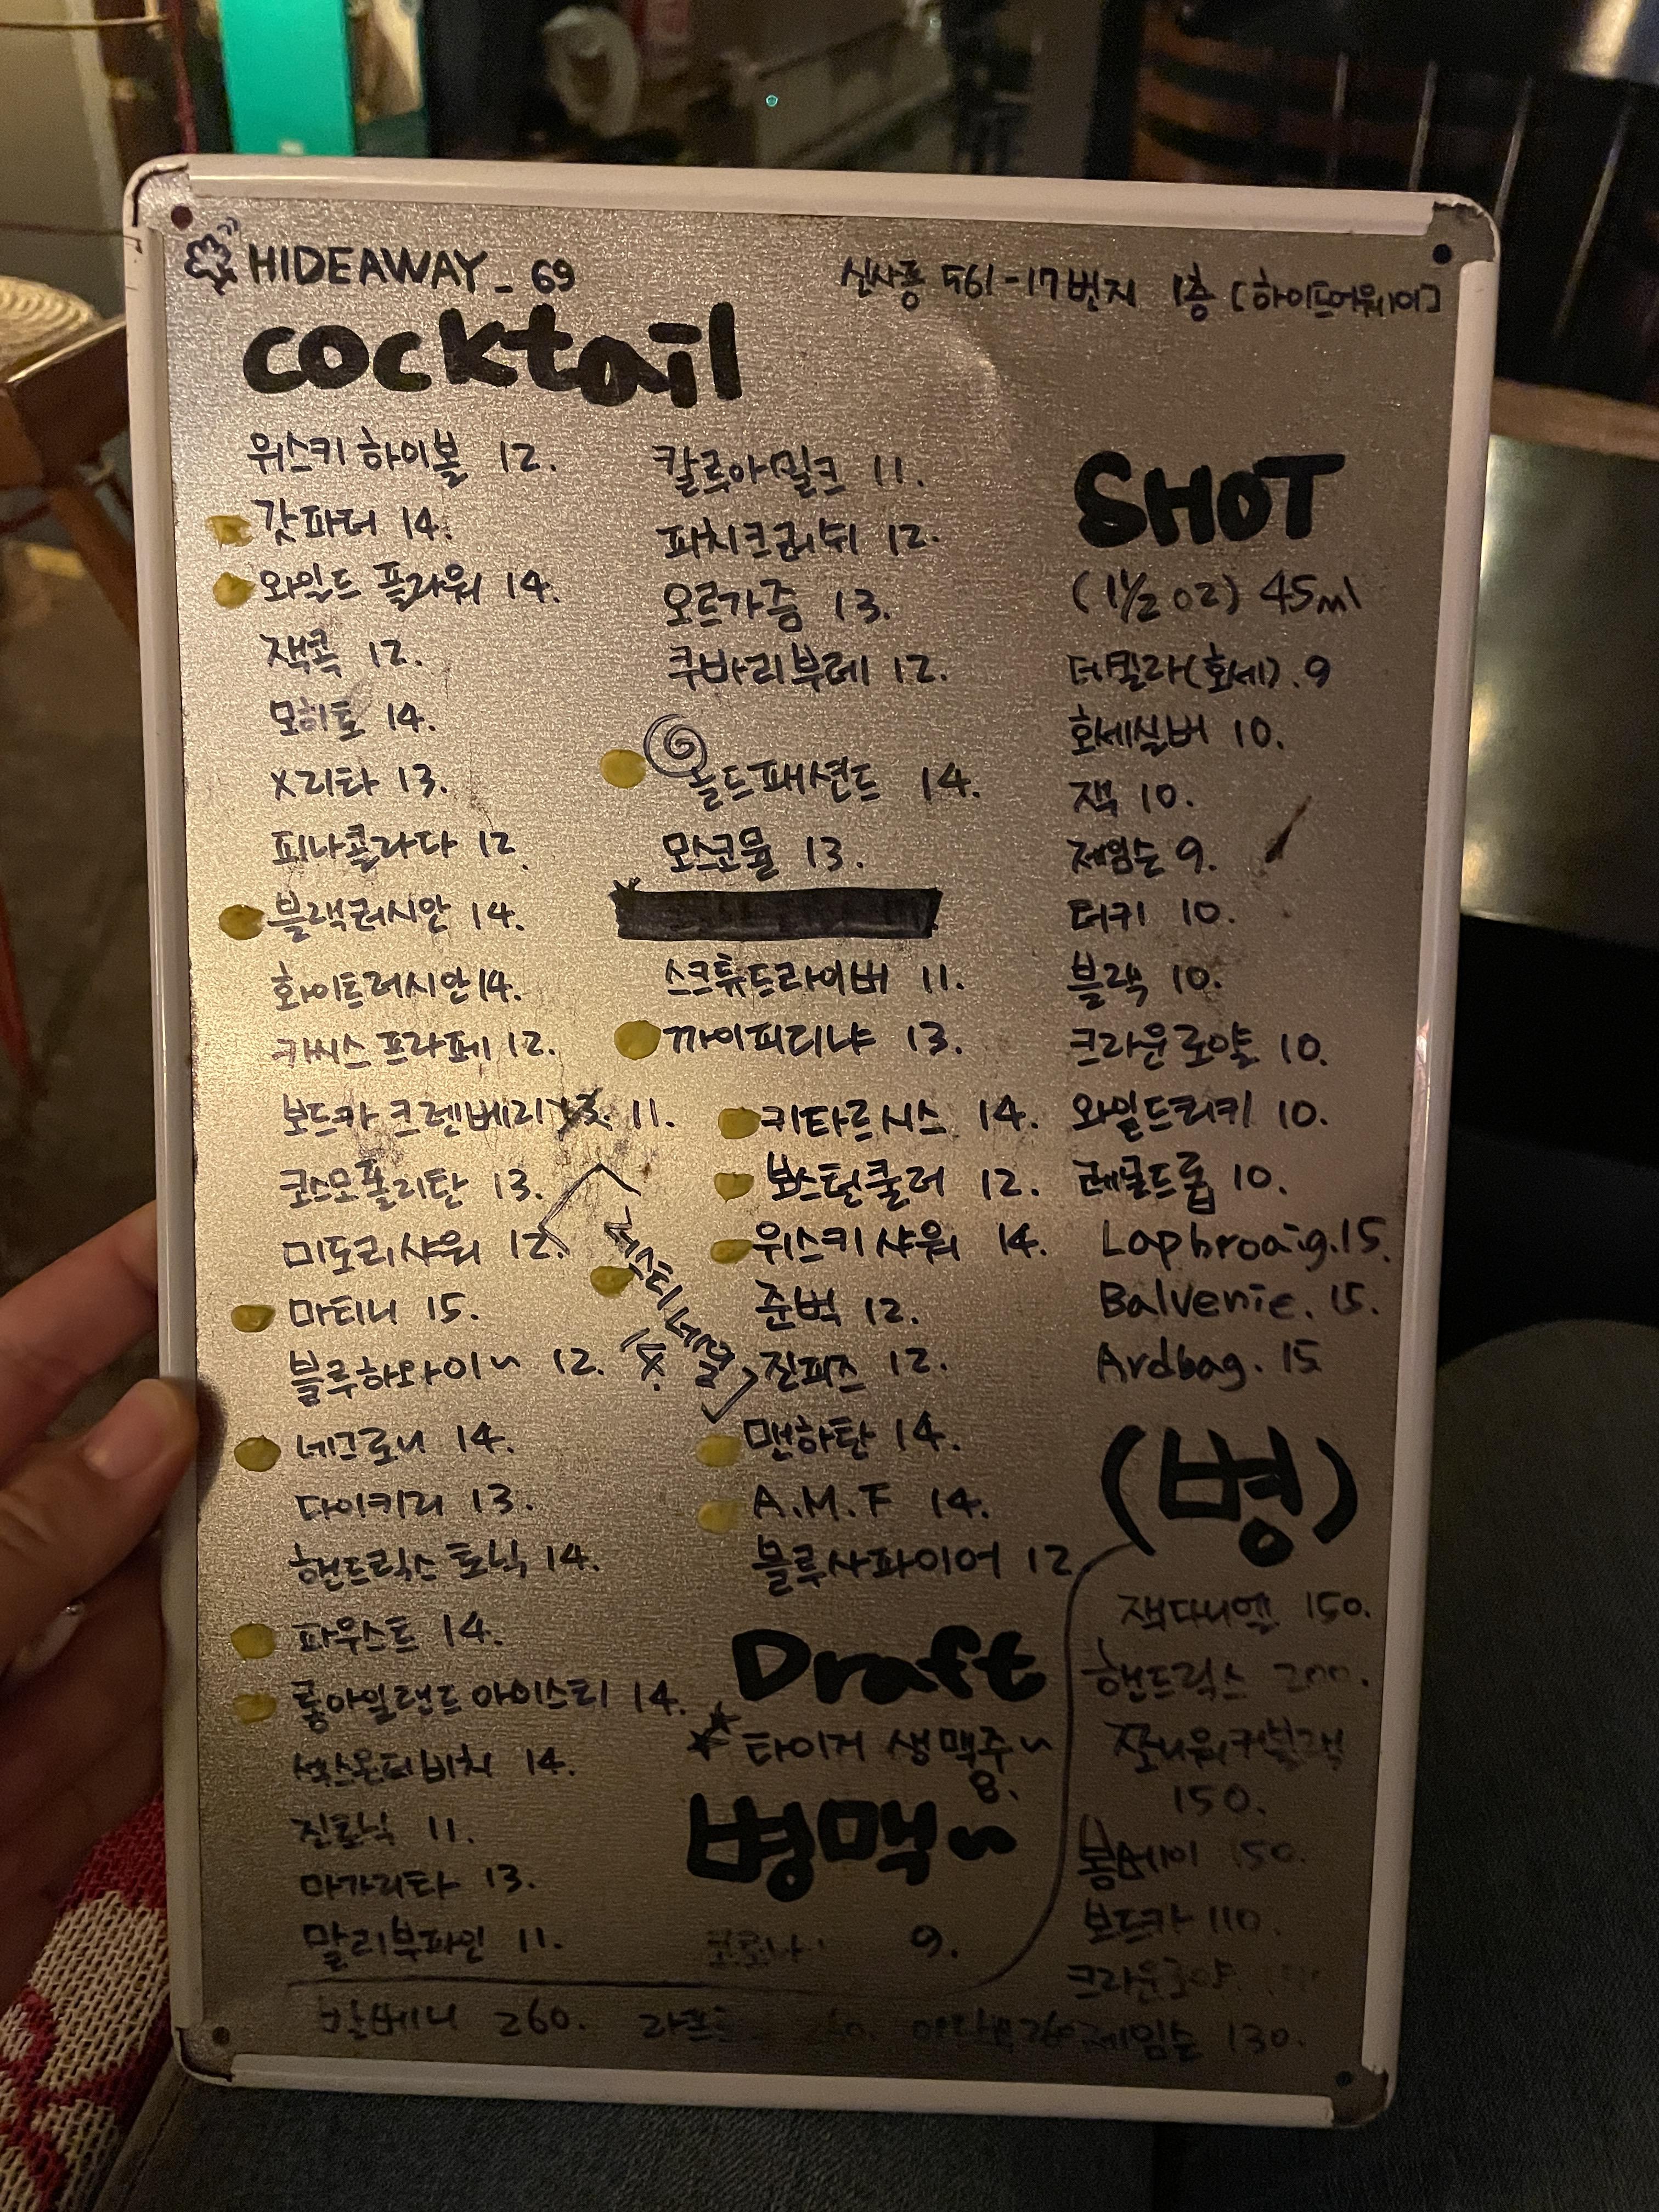 HIDEAWAY_69
신사동 561-17번지 1층 [하이드어웨이]
cocktail
위스키 하이볼 12.
갓파더 14.
와일드 플라워 14.
잭콕 12.
모히또 14.
X리타 13.
피나콜라다 12.
블랙러시안 14.
화이트러시안 14.
카시스 프라페 12.
보드카 크렌베리 11.
코스모폴리탄 13.
미도리샤워 12.
마티니 15.
블루하와이~ 12.
네그로니 14.
다이키리 13.
핸드릭스 토닉 14.
파우스트 14.
롱아일랜드 아이스티 14.
섹스온더비치 14.
진토닉 11.
마가리타 13.
말리부파인 11.
칼루아밀크 11.
피치크러쉬 12.
오르가즘 13.
쿠바리부레 12.
올드패션드 14.
모스코뮬 13.
스크류드라이버 11.
까이피리냐 13.
키타르시스 14.
보스턴쿨러 12.
위스키샤워 14.
준벅 12.
진피즈 12.
맨하탄 14.
A.M.F 14.
블루사파이어 12
러스티네일
14.
Draft
타이거 생맥주~
8.
병맥~
코로나 9.
SHOT
(1½oz) 45ml
데킬라(호세). 9
호세실버 10.
잭 10.
제임슨 9.
터키 10.
블랙 10.
크라운로얄 10.
와일드터키 10.
레몬드롭 10.
Lapbroaig. 15.
Balvenie. 15.
Ardbag. 15
(병)
잭다니엘 150.
핸드릭스 200.
죠니워커블랙
150.
봄베이 150.
보드카 110.
크라운로얄
발베니 260. 260 제임슨 130.